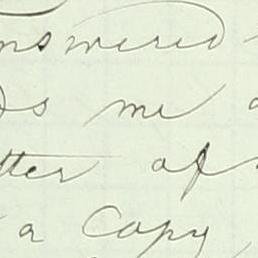 nswered
ds me a
tter of
a Copy